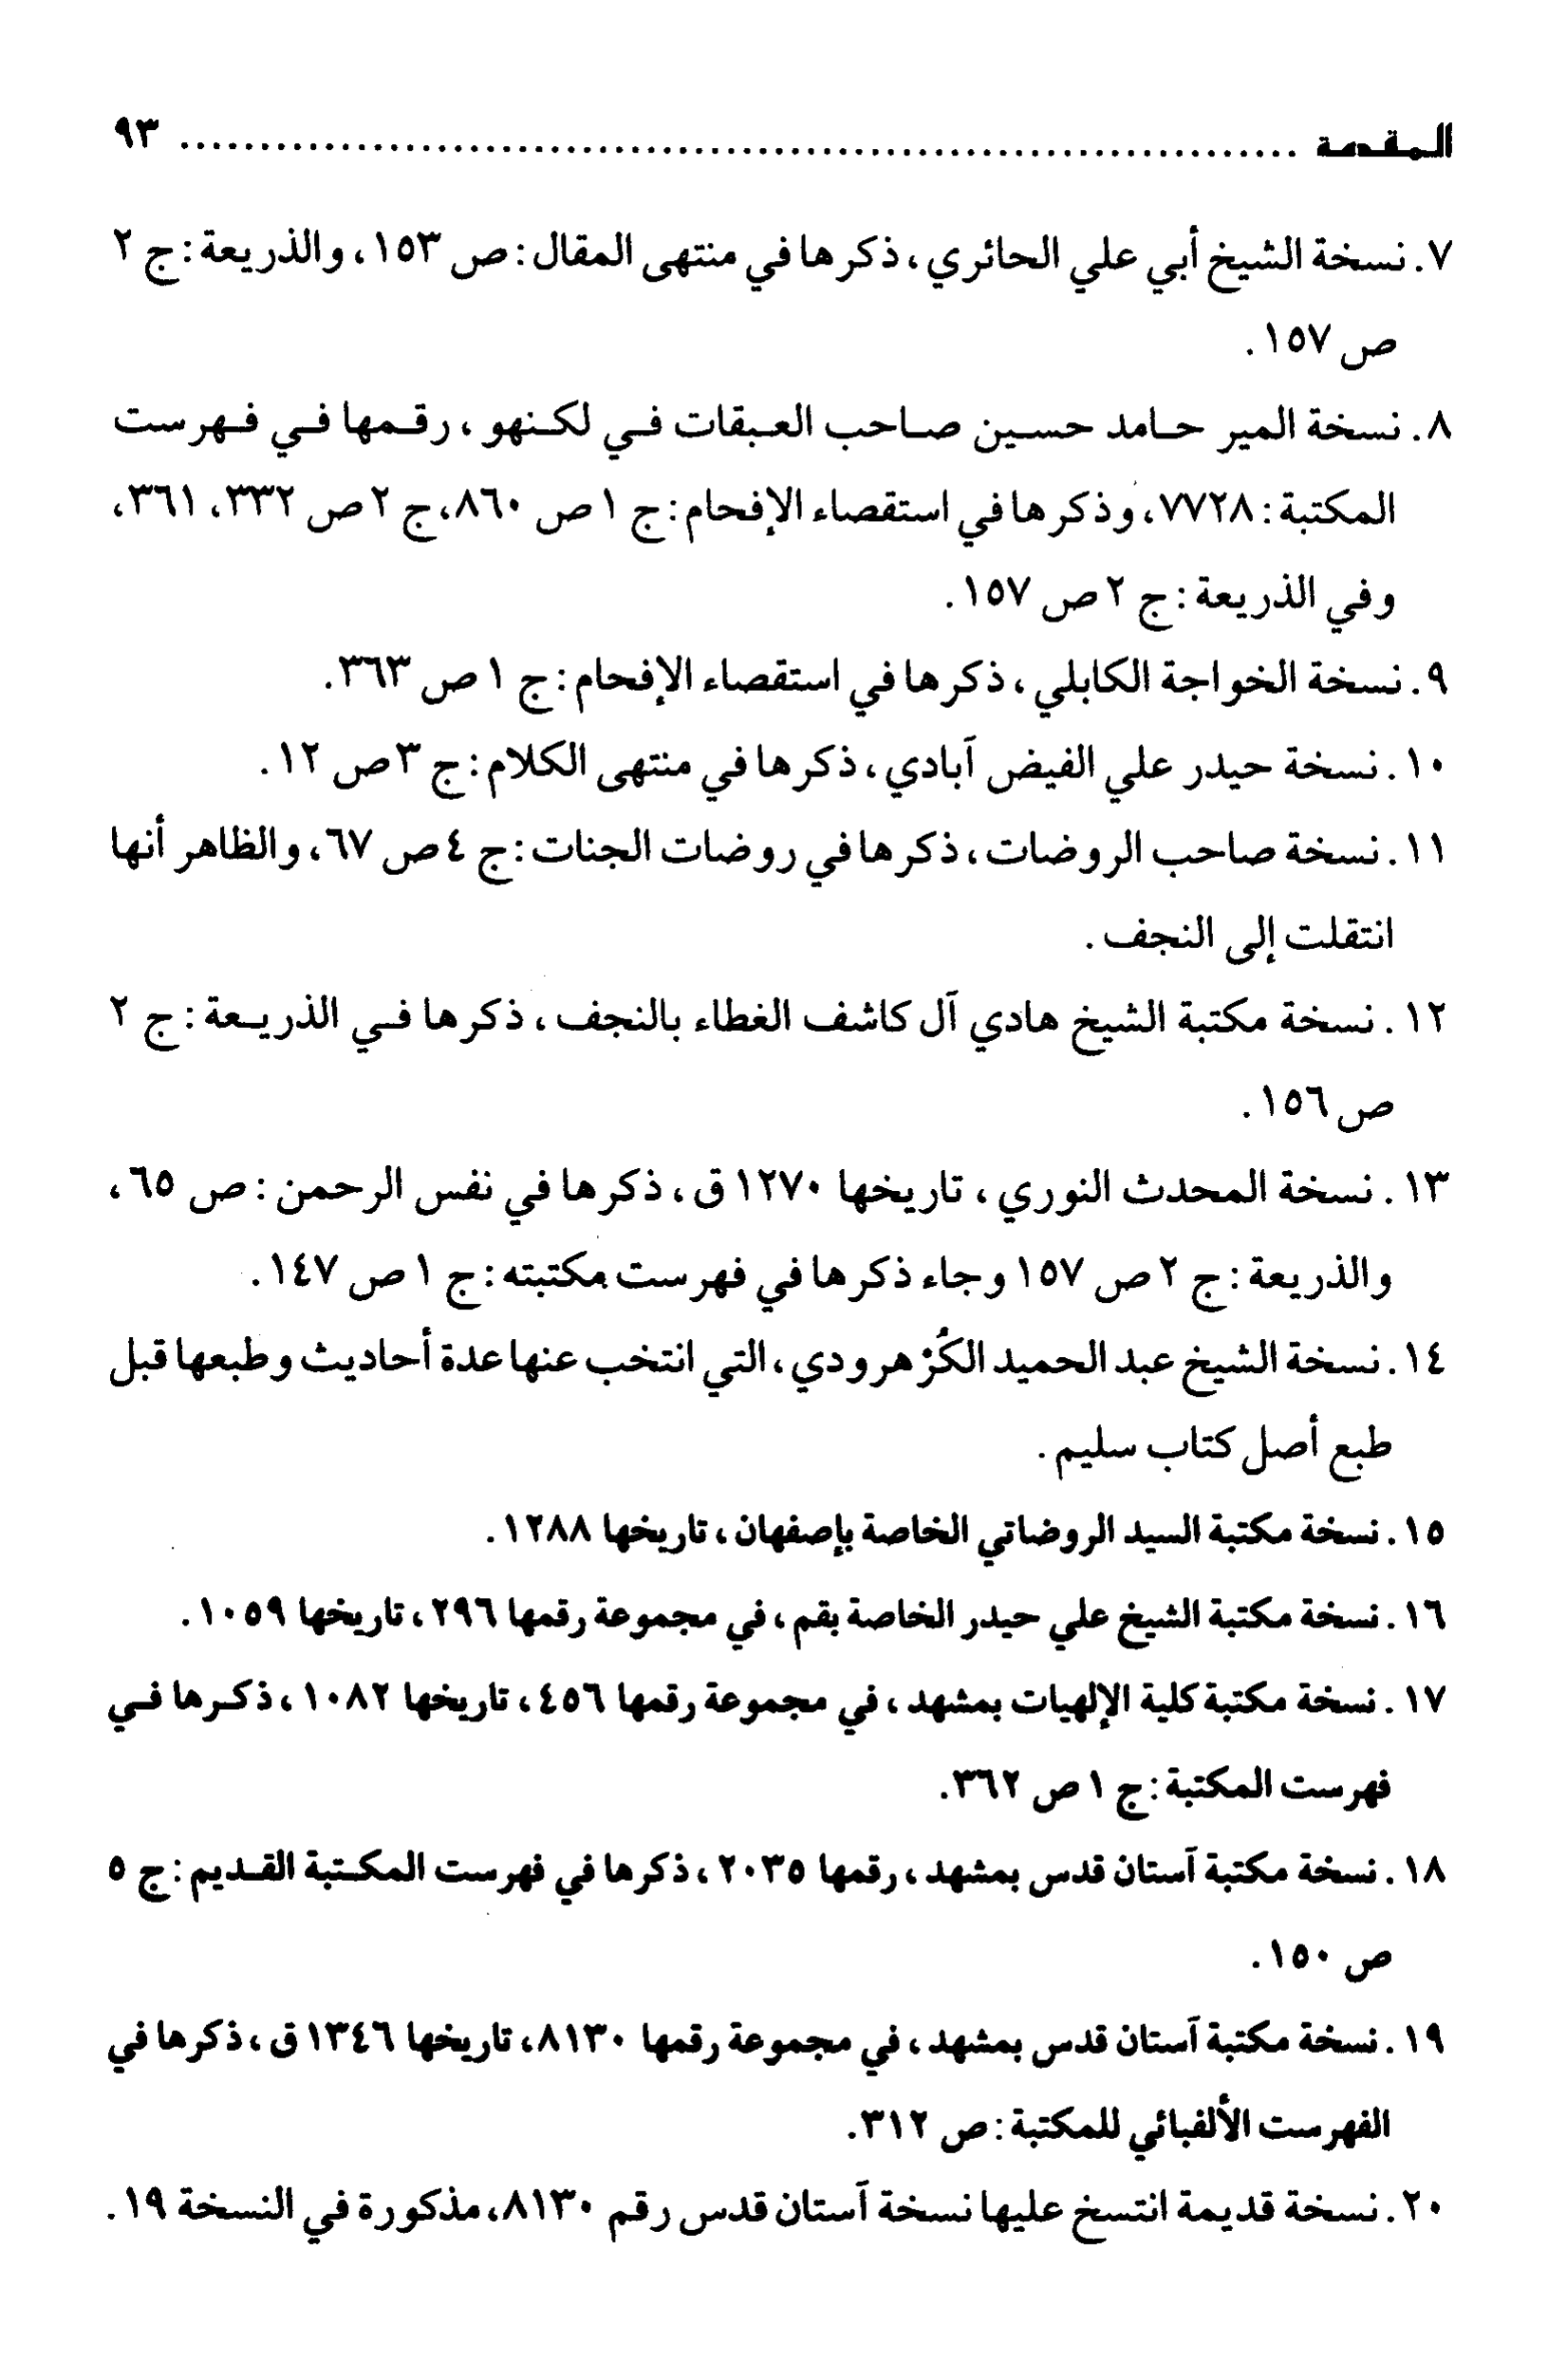 المقدمة ...................................................................... ٩٣
٧. نسخة الشيخ أبي علي الحائري، ذكرها في منتهى المقال: ص ١٥٣، والذريعة: ج ٢
ص ١٥٧.
٨. نسخة المير حامد حسين صاحب العبقات في لكنهو، رقمها في فهرست
المكتبة: ٧٧٢٨، وذكرها في استقصاء الإفحام: ج ١ ص ٨٦٠، ج ٢ ص ٣٣٢، ٣٦١،
وفي الذريعة: ج ٢ ص ١٥٧.
٩. نسخة الخواجة الكابلي، ذكرها في استقصاء الإفحام: ج ١ ص ٣٦٣.
١٠. نسخة حيدر علي الفيض آبادي، ذكرها في منتهى الكلام: ج ٣ ص ١٢.
١١. نسخة صاحب الروضات، ذكرها في روضات الجنات: ج ٤ ص ٦٧، والظاهر أنها
انتقلت إلى النجف.
١٢. نسخة مكتبة الشيخ هادي آل كاشف الغطاء بالنجف، ذكرها في الذريعة: ج ٢
ص ١٥٦.
١٣. نسخة المحدث النوري، تاريخها ١٢٧٠ ق، ذكرها في نفس الرحمن: ص ٦٥،
والذريعة: ج ٢ ص ١٥٧ وجاء ذكرها في فهرست مكتبته: ج ١ ص ١٤٧.
١٤. نسخة الشيخ عبد الحميد الكُرْهرودي، التي انتخب عنها عدة أحاديث وطبعها قبل
طبع أصل كتاب سليم.
١٥. نسخة مكتبة السيد الروضاتي الخاصة بإصفهان، تاريخها ١٢٨٨.
١٦. نسخة مكتبة الشيخ علي حيدر الخاصة بقم، في مجموعة رقمها ٢٩٦، تاريخها ١٠٥٩.
١٧. نسخة مكتبة كلية الإلهيات بمشهد، في مجموعة رقمها ٤٥٦، تاريخها ١٠٨٢، ذكرها في
فهرست المكتبة: ج ١ ص ٣٦٢.
١٨. نسخة مكتبة آستان قدس بمشهد، رقمها ٢٠٣٥، ذكرها في فهرست المكتبة القديم: ج ٥
ص ١٥٠.
١٩. نسخة مكتبة آستان قدس بمشهد، في مجموعة رقمها ٨١٣٠، تاريخها ١٣٤٦ ق، ذكرها في
الفهرست الألفبائي للمكتبة: ص ٣١٢.
٢٠. نسخة قديمة انتسخ عليها نسخة آستان قدس رقم ٨١٣٠، مذكورة في النسخة ١٩.